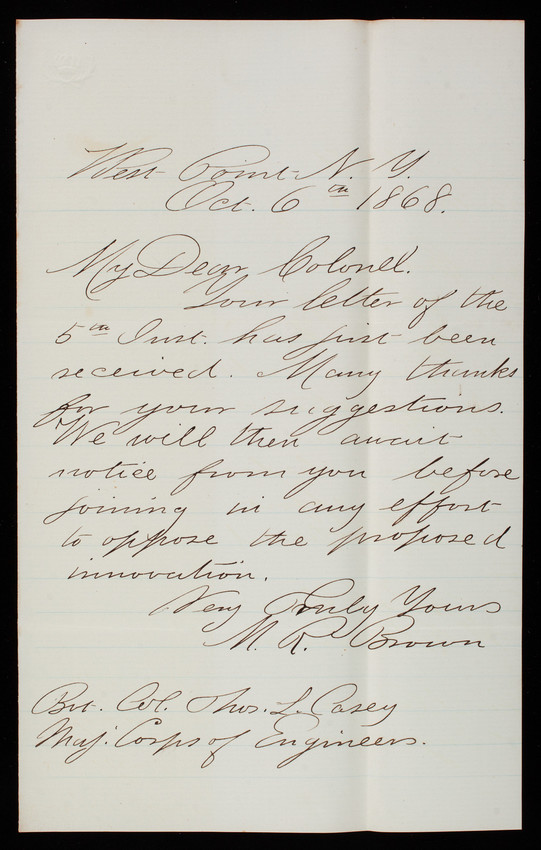 West Point N. Y.
Oct. 6th 1868.
My Dear Colonel.
Your letter of the
5th Inst. has just been
received. Many thanks
for your suggestions.
We will then await
notice from you before
joining in any effort
to oppose the proposed
innovation.
Very Truly Yours
M. R. Brown
Bvt. Col. Thos. L. Casey
Maj. Corps of Engineers.